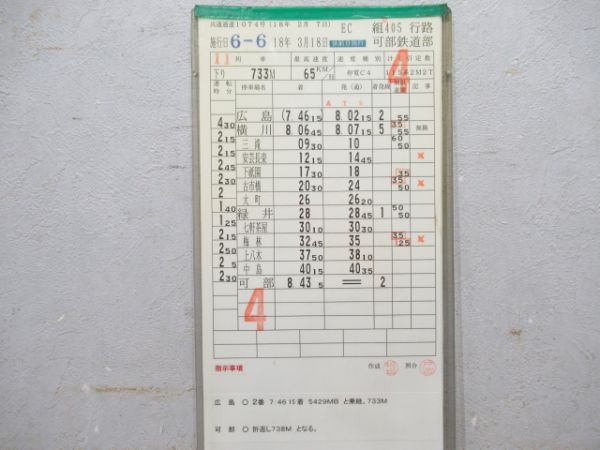 共通通達1074号(18年 2月 7日) EC 組405 行路
施行日 6-6 18年 3月18日 可部鉄道部
列車 最高速度 速度種別 けん引定数
下り 733M 65KM/H 停電C4 115系2M2T
運転時分 停車場名 着 発(通) 着発線 記事
ATS
広島 (7.46 15) 8.02 15 2 55
4 30 横川 8.06 45 8.07 15 5 35 55
2 15 三滝 09 30 10 60 50
2 15 安芸長束 12 15 14 45 ×
2 45 下祇園 17 30 18 35
2 30 古市橋 20 30 24 35 50 ×
2 大町 26 26 20
1 40 緑井 28 28 45 1 50 50
1 25 七軒茶屋 30 10 30 30
2 15 梅林 32 45 35 35 25 ×
2 50 上八木 37 50 38 10
2 5 中島 40 15 40 35
2 30 可部 8.43 5 = 2
4
4
指示事項 作成 照合
広島 ○2番 7:46 15着 5429MB と乗継。733M
可部 ○ 折返し738M となる。